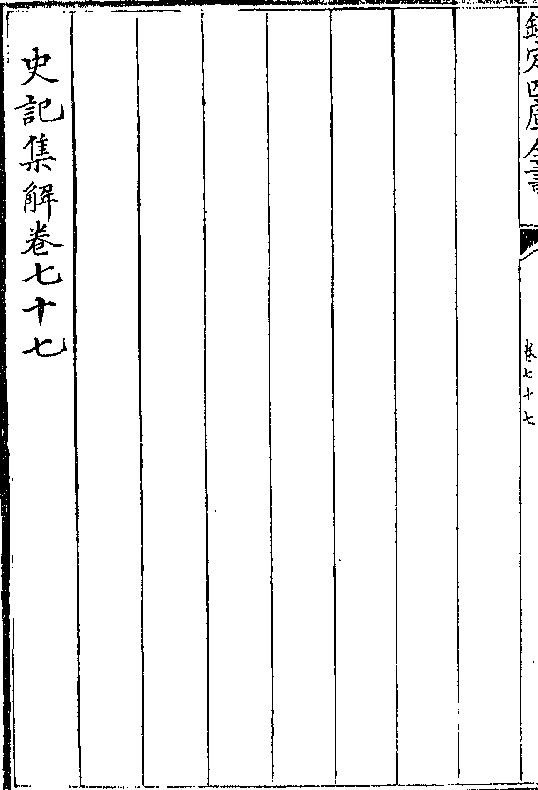 欽定四庫全書
卷七十七
史記集解卷七十七